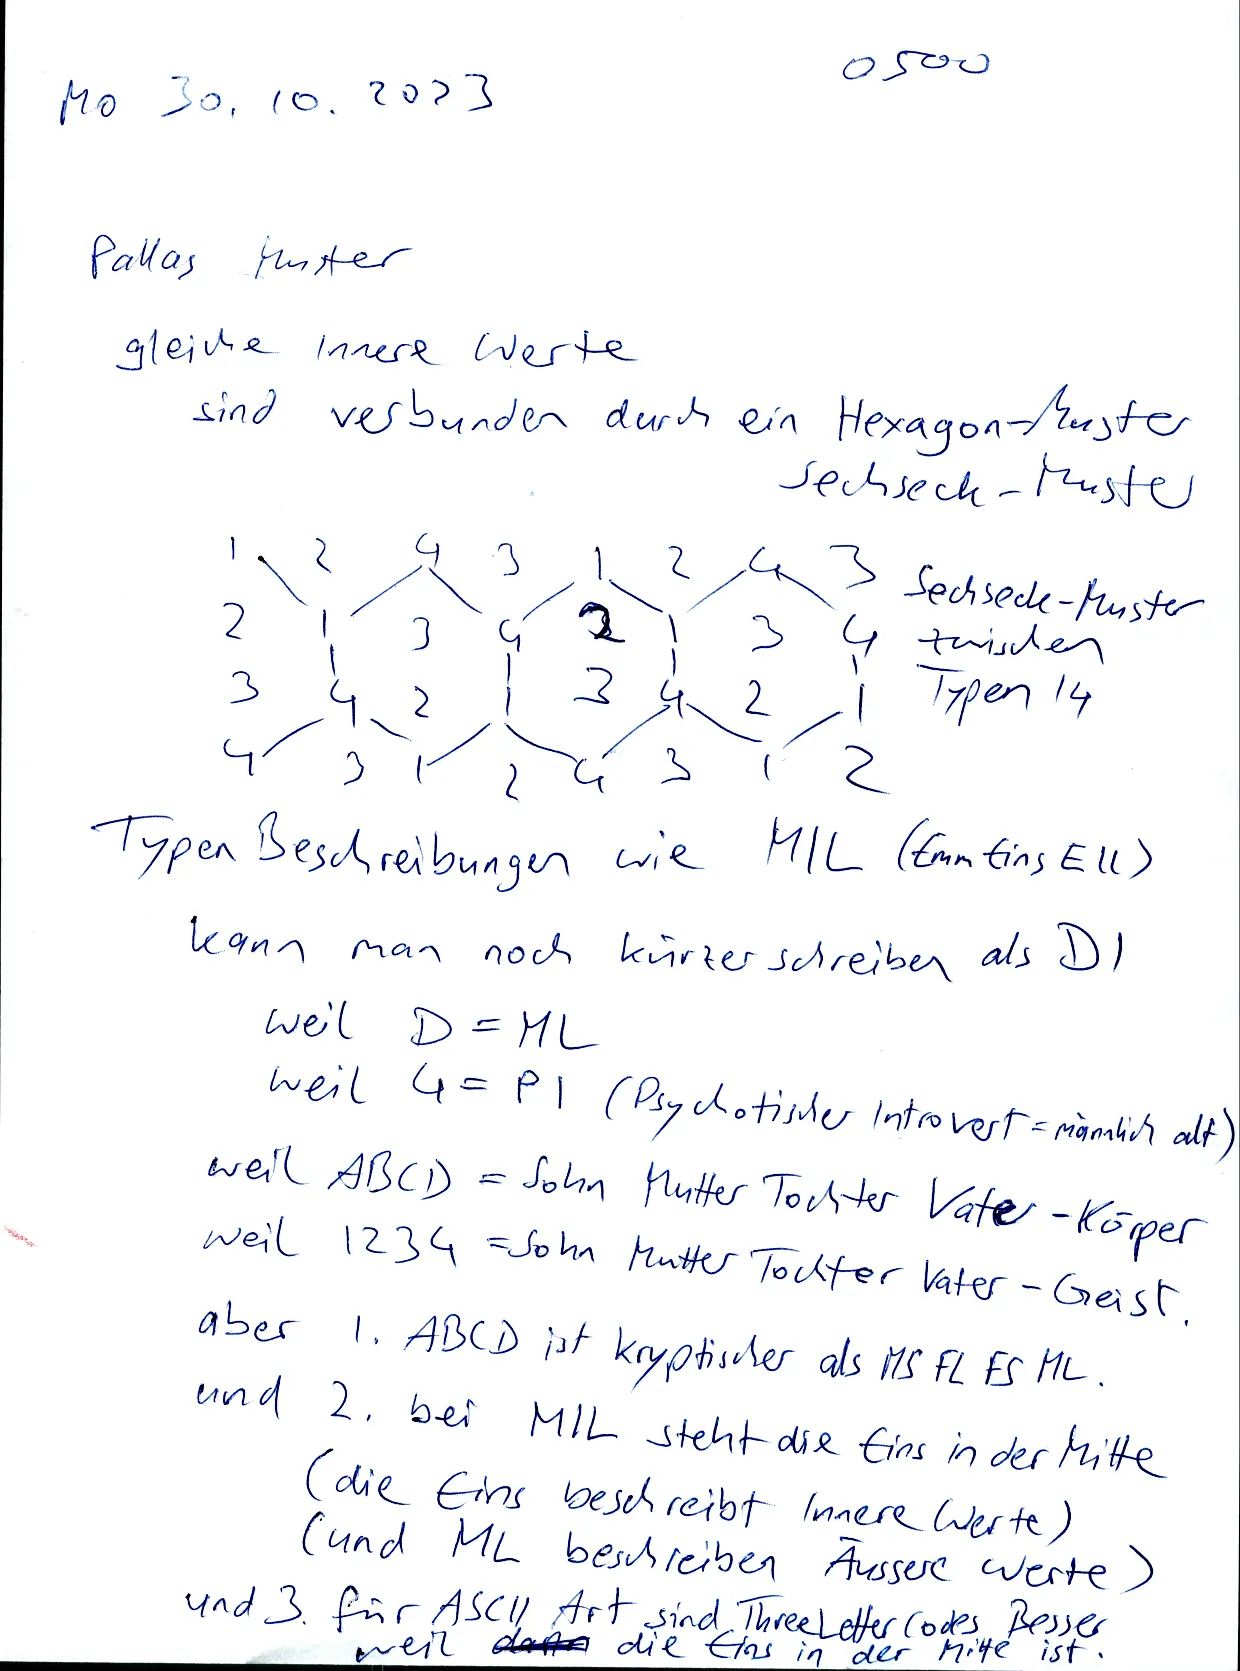 0500
Mo 30. 10. 2023
Pallas Muster
gleiche innere Werte
sind verbunden durch ein Hexagon-Muster
Sechseck-Muster
1 2 4 3 1 2 4 3 Sechseck-Muster
2 1 3 4 2 1 3 4 zwischen
3 4 2 1 3 4 2 1 Typen 14
4 3 1 2 4 3 1 2
Typen Beschreibungen wie M1L (Emm Eins Ell)
kann man noch kürzer schreiben als D1
weil D = ML
weil 4 = PI (Psychotischer Introvert = männlich alt)
weil ABCD = Sohn Mutter Tochter Vater-Körper
weil 1234 = Sohn Mutter Tochter Vater-Geist.
aber 1. ABCD ist kryptischer als MS FL FS ML.
und 2. bei M1L steht die Eins in der Mitte
(die Eins beschreibt Innere Werte)
(und ML beschreiben Äussere Werte)
und 3. für ASCII Art sind ThreeLetterCodes Besser
weil die Eins in der Mitte ist.